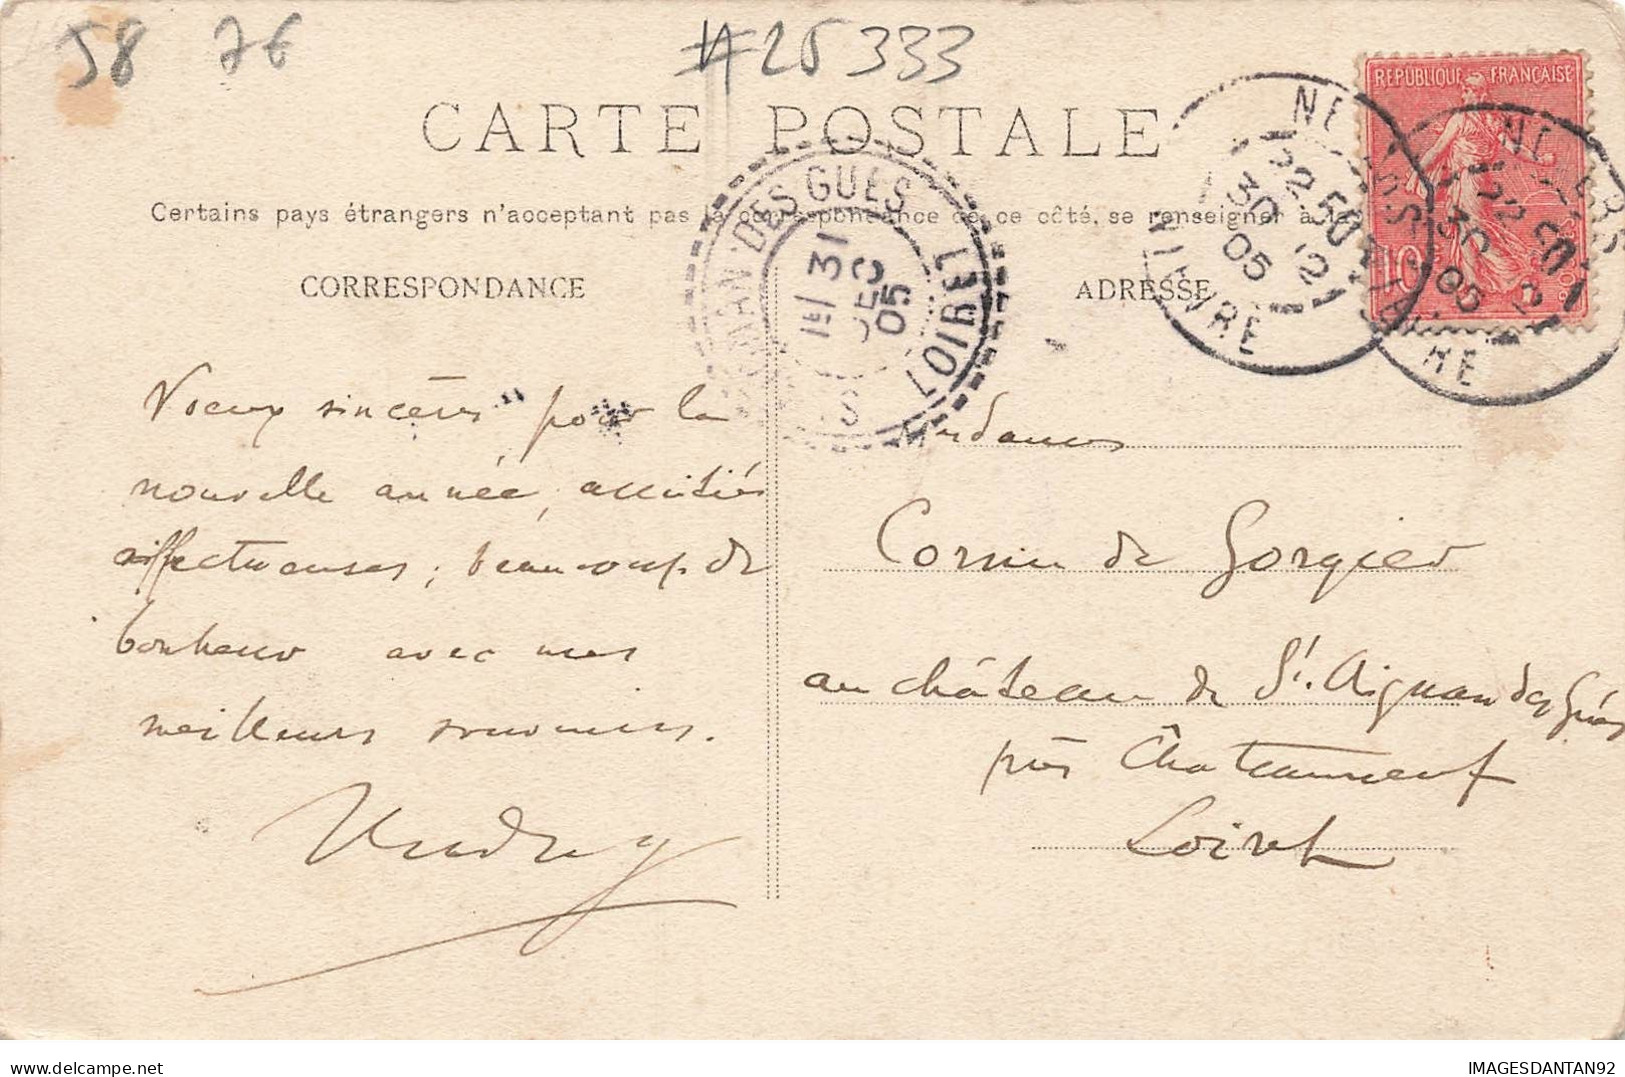 58 76 #25333
CARTE POSTALE
Certains pays étrangers n'acceptant pas la correspondance de ce côté, se renseigner à la
CORRESPONDANCE
ADRESSE
REPUBLIQUE FRANÇAISE
10
POSTES
NEVERS
22 50
30 12
05
NIEVRE
NEVERS
22 50
30 12
05
NIEVRE
AIGNAN DES GUES
31
DEC
05
LOIRET
Voeux sincères pour la
nouvelle année, amitiés
affectueuses, beaucoup de
bonheur avec mes
meilleurs souvenirs.
Mesdames
de Gorgier
au château de St. Aignan des Gués
près Châteauneuf
Loiret
IMAGESDANTAN92